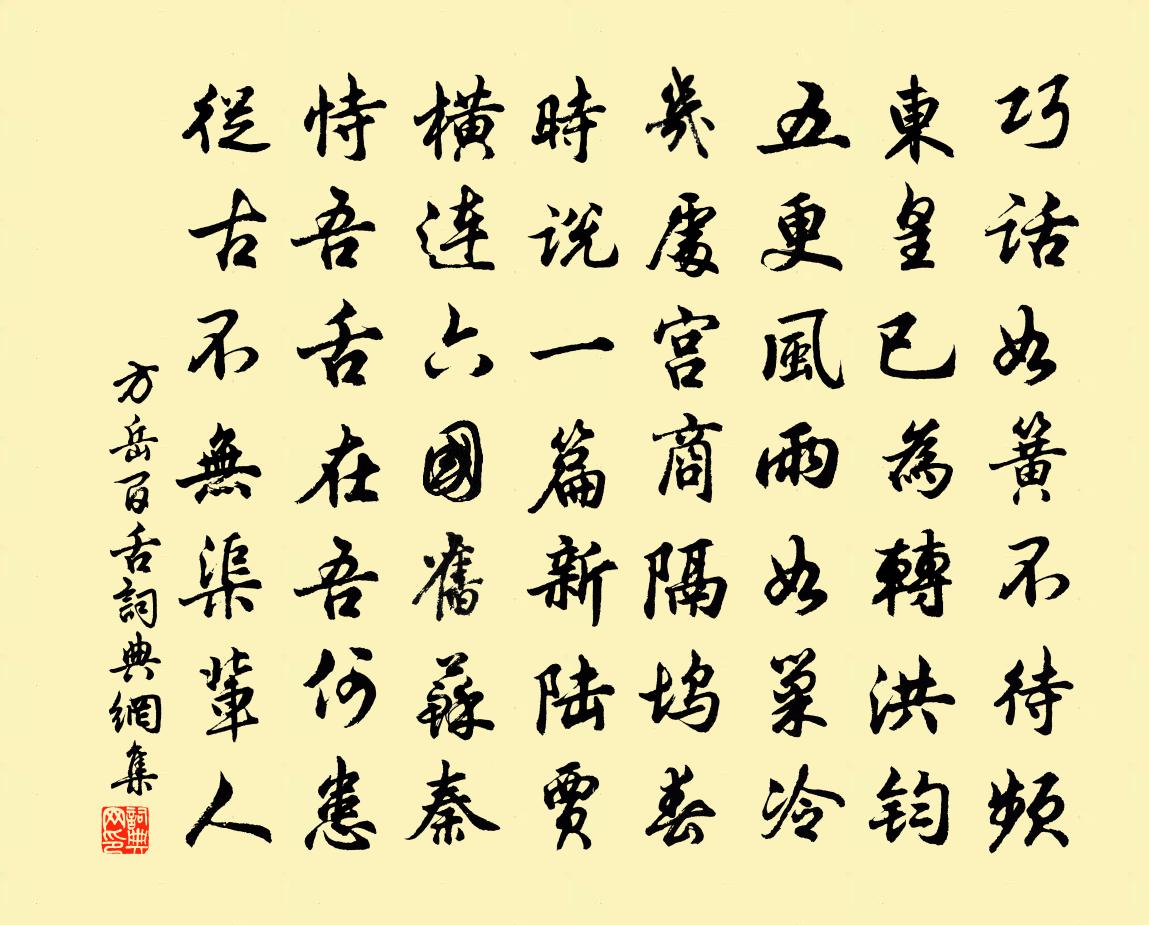 巧話如簧不待頻
東皇已為轉洪鈞
五更風雨如巢冷
幾處宮商隔塢春
時説一篇新陸賈
橫連六國舊蘇秦
恃吾舌在吾何患
從古不無渠輩人
方岳百舌詞典網集
詞典
网印